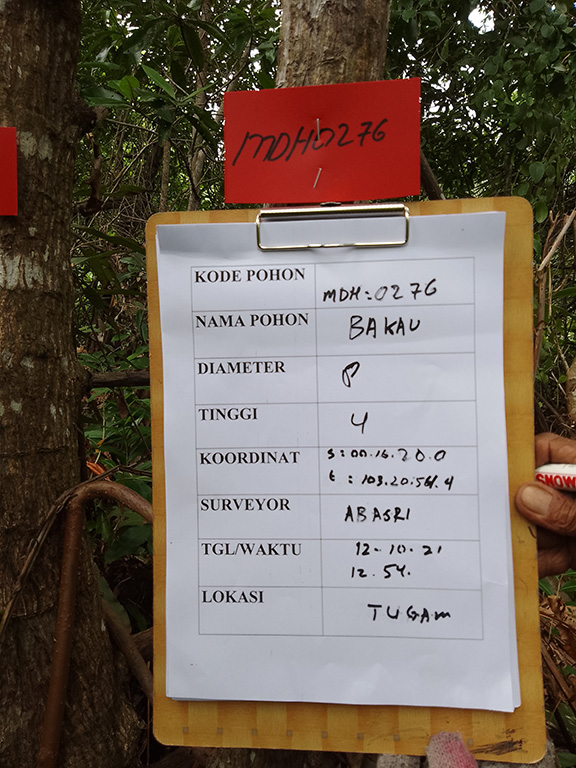 MDH0276
KODE POHON MDH:0276
NAMA POHON BAKAU
DIAMETER
TINGGI 4
KOORDINAT S:00.16.20.0
E:103.20.54.4
SURVEYOR ABASRI
TGL/WAKTU 12-10-21
12.54.
LOKASI TUGAM
SNOW